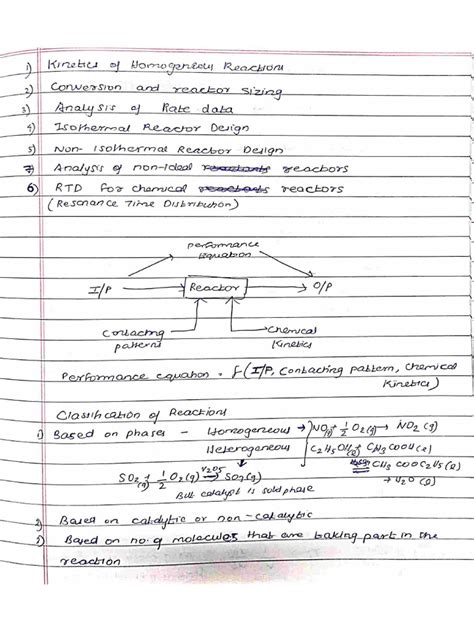 1) Kinetics of Homogeneous Reactions
2) Conversion and reactor sizing
3) Analysis of Rate data
4) Isothermal Reactor Design
5) Non-Isothermal Reactor Design
7) Analysis of non-Ideal reactants reactors
6) RTD for chemical reactants reactors
(Resonance Time Distribution)
performance
Equation
I/P → Reactor → O/P
Contacting patterns
Chemical Kinetics
Performance equation = f (I/P, Contacting pattern, Chemical
Kinetics)
Classification of Reactions
1) Based on phases - Homogeneous → NO(g) + 1/2 O2(g) → NO2 (g)
Heterogeneous C2H5OH(l) + CH3COOH(l)
⇌ CH3COOC2H5(l)
+ H2O (l)
SO2(g) + 1/2 O2(g) V2O5→ SO3(g)
But catalyst is solid phase
2) Based on catalytic or non-catalytic
3) Based on no. of molecules that are taking part in the
reaction